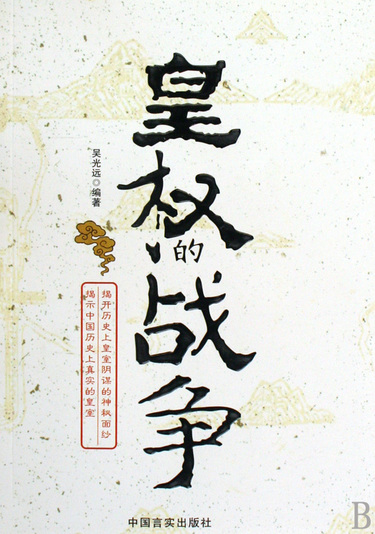 皇权的战争
吴光远◎编著
揭开历史上皇室阴谋的神秘面纱
揭示中国历史上真实的皇室
中国言实出版社
B